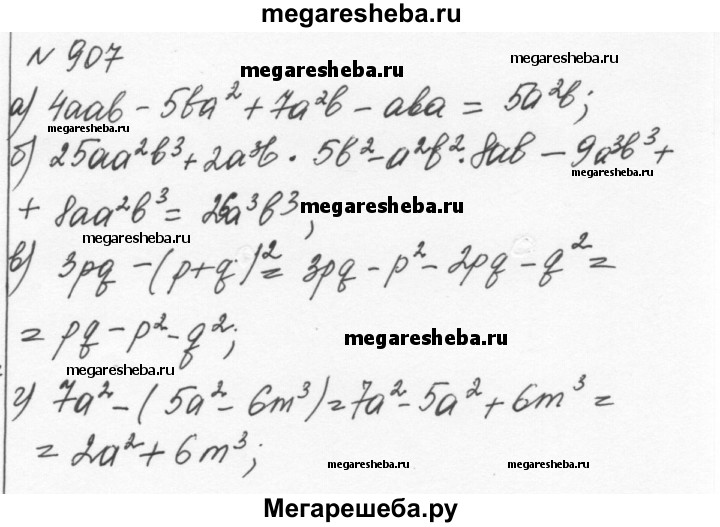 megaresheba.ru
N 907
megaresheba.ru
megaresheba.ru
а) 4aab - 5ba² + 7a²b - aba = 5a²b;
megaresheba.ru
б) 25aa²b³ + 2a³b · 5b² - a²b² · 8ab - 9a³b³ +
megaresheba.ru
+ 8aa²b³ = 26a³b³;
megaresheba.ru
megaresheba.ru
в) 3pq - (p+q)² = 3pq - p² - 2pq - q² =
= pq - p² - q²;
megaresheba.ru
megaresheba.ru
г) 7a² - (5a² - 6m³) = 7a² - 5a² + 6m³ =
= 2a² + 6m³;
megaresheba.ru
megaresheba.ru
Мегарешеба.ру